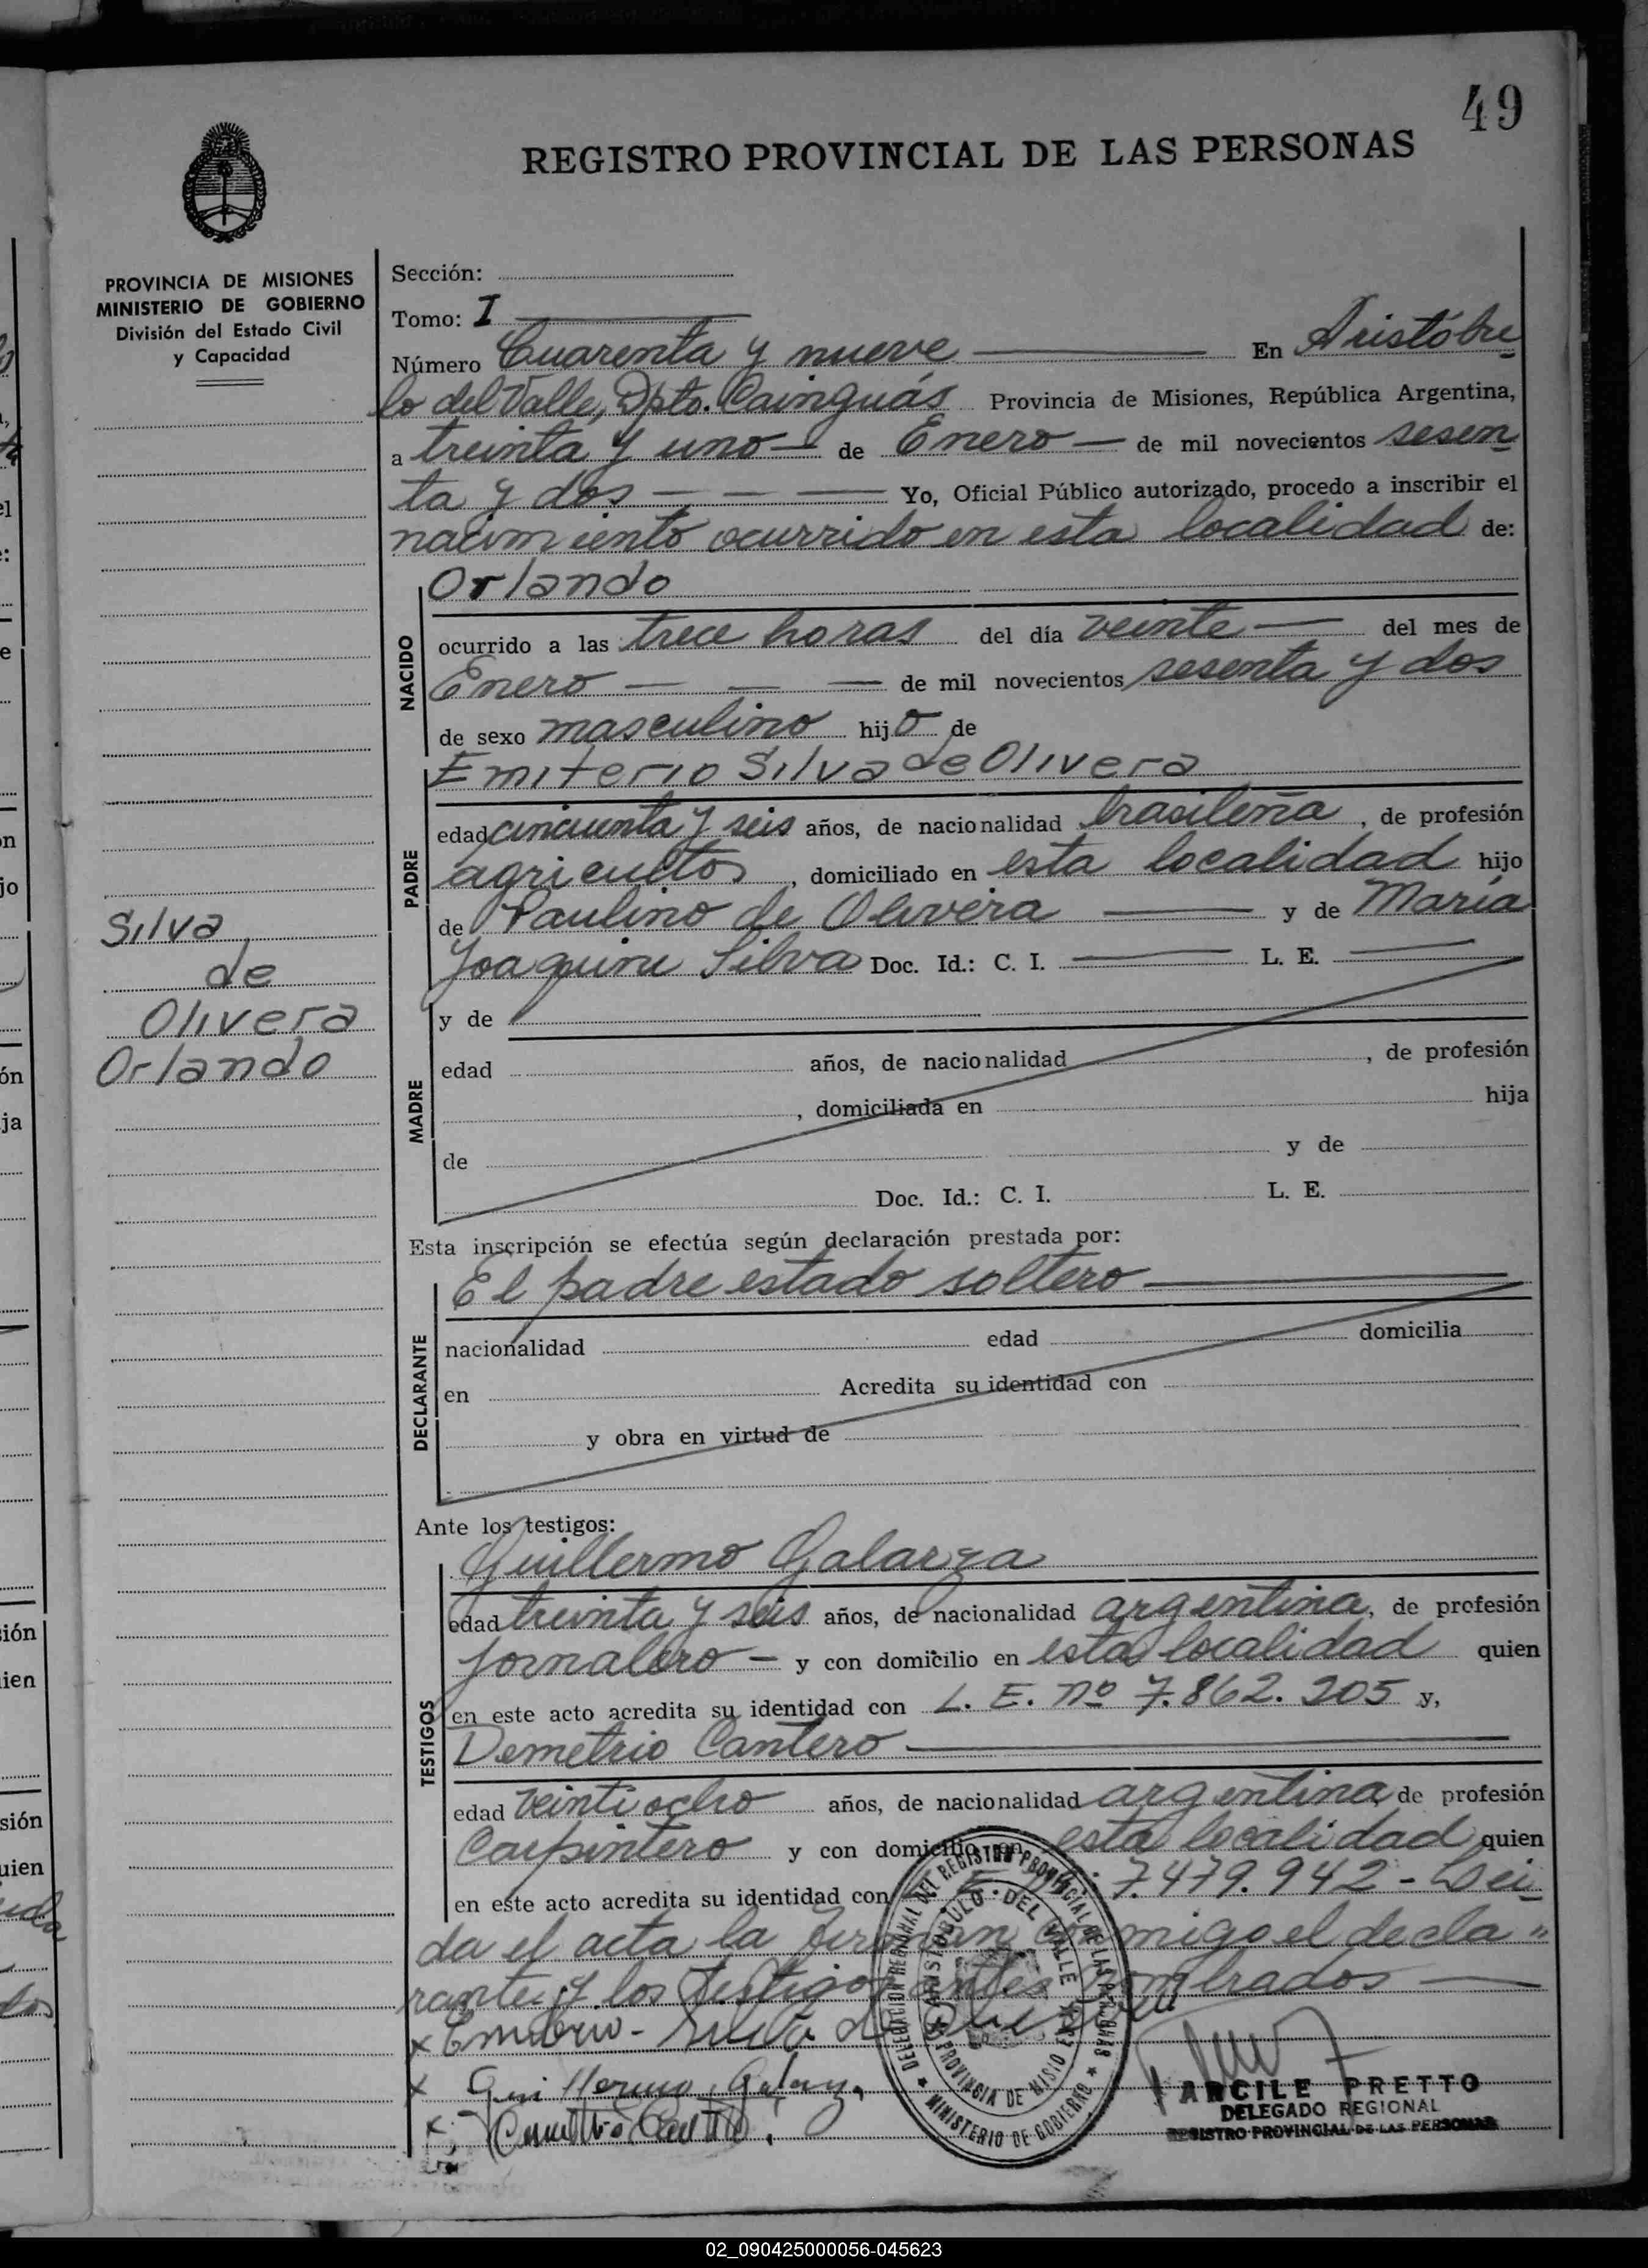 49
REGISTRO PROVINCIAL DE LAS PERSONAS
PROVINCIA DE MISIONES
MINISTERIO DE GOBIERNO
División del Estado Civil
y Capacidad
Sección:
Tomo: I
Número Cuarenta y nueve En Aristóbu
lo del Valle, Dpto. Cainguás Provincia de Misiones, República Argentina,
a treinta y uno de Enero de mil novecientos sesen
ta y dos Yo, Oficial Público autorizado, procedo a inscribir el
nacimiento ocurrido en esta localidad de:
Orlando
NACIDO
ocurrido a las trece horas del día veinte del mes de
Enero de mil novecientos sesenta y dos
de sexo masculino hijo de
Emiterio Silva de Olivera
PADRE
edad cincuenta y seis años, de nacionalidad brasileña, de profesión
agricultor, domiciliado en esta localidad hijo
de Paulino de Olivera y de María
Joaquina Silva Doc. Id.: C. I. L. E.
Silva
de
Olivera
Orlando
MADRE
y de
edad años, de nacionalidad , de profesión
, domiciliada en hija
de y de
Doc. Id.: C. I. L. E.
Esta inscripción se efectúa según declaración prestada por:
El padre estado soltero
DECLARANTE
nacionalidad edad domicilia
en Acredita su identidad con
y obra en virtud de
Ante los testigos:
Guillermo Galarza
TESTIGOS
edad treinta y seis años, de nacionalidad argentina, de profesión
jornalero - y con domicilio en esta localidad quien
en este acto acredita su identidad con L. E. nº 7.862.205 y,
Demetrio Cantero
edad veintiocho años, de nacionalidad argentina, de profesión
Carpintero y con domicilio en esta localidad quien
en este acto acredita su identidad con 7.479.942 - Leí
da el acta la firman conmigo el decla "
rante y los testigos antes nombrados
x Emiterio - Silva de Olivera
x Guillermo Galarza
x
DELEGACION REGIONAL DEL REGISTRO PROVINCIAL DE LAS PERSONAS
ARISTOBULO DEL VALLE
PROVINCIA DE MISIONES
MINISTERIO DE GOBIERNO
ARCILE PRETTO
DELEGADO REGIONAL
REGISTRO PROVINCIAL DE LAS PERSONAS
02_090425000056-045623